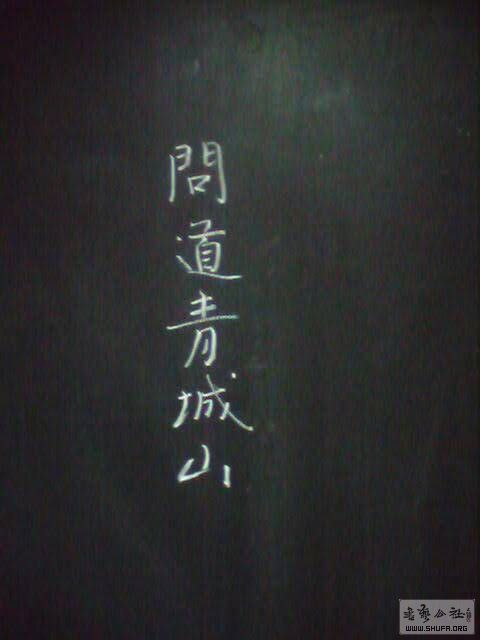 問道青城山
书艺公社
WWW.SHUFA.ORG